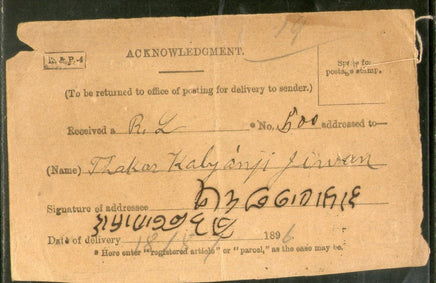 19
D. & P.-4
ACKNOWLEDGMENT.
Space for
postage stamp.
(To be returned to office of posting for delivery to sender.)
Received a R. L * No. 500 addressed to—
(Name) Thakar Kalyanji Jiwan
Signature of addressee
Date of delivery 18 1896
* Here enter "registered article" or "parcel," as the case may be.